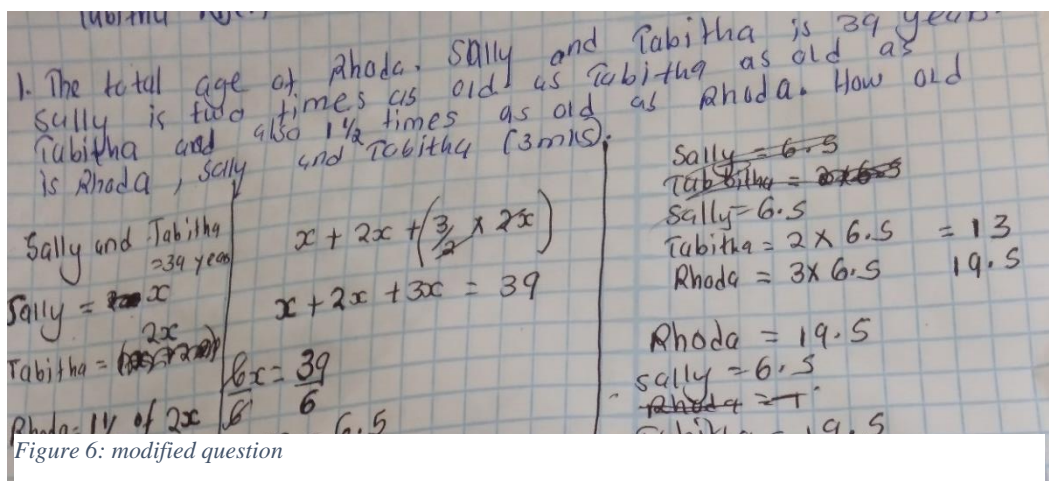 1. The total age of Rhoda, Sally and Tabitha is 39 years.
Sally is two times as old as Tabitha as old as
Tabitha and also 1 1/2 times as old as Rhoda. How old
is Rhoda, Sally and Tabitha (3mks).
Sally and Tabitha
=39 years
Sally = x
Tabitha = 2x
Rhoda = of 2x
x + 2x + (3/2 x 2x)
x + 2x + 3x = 39
6x = 39
6 6
6.5
Sally = 6.5
Tabitha =
Sally = 6.5
Tabitha = 2 x 6.5 = 13
Rhoda = 3 x 6.5 19.5
Rhoda = 19.5
Sally = 6.5
Rhoda =
19.5
Figure 6: modified question